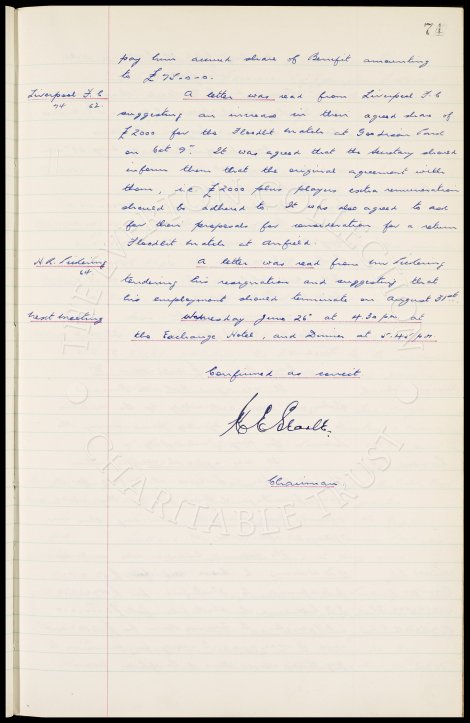 71
pay him accrued share of Benefit amounting
to £75-0-0.
Liverpool F.C A letter was read from Liverpool F.C
74 62. suggesting an increase in their agreed share of
£2000 for the Floodlit Match at Goodison Park
on Oct 9th. It was agreed that the Secretary should
inform them that the original agreement with
them, i.e £2000 plus players extra remuneration
should be adhered to. It was also agreed to ask
for their proposals for consideration for a return
Floodlit Match at Anfield.
H.R. Pickering A letter was read from Mr Pickering
64. tendering his resignation and suggesting that
his employment should terminate on August 31st.
Next Meeting Wednesday June 26th at 4.30 pm. at
the Exchange Hotel, and Dinner at 5.45 pm.
Confirmed as correct
Chairman
THE EVERTON COLLECTION
CHARITABLE TRUST